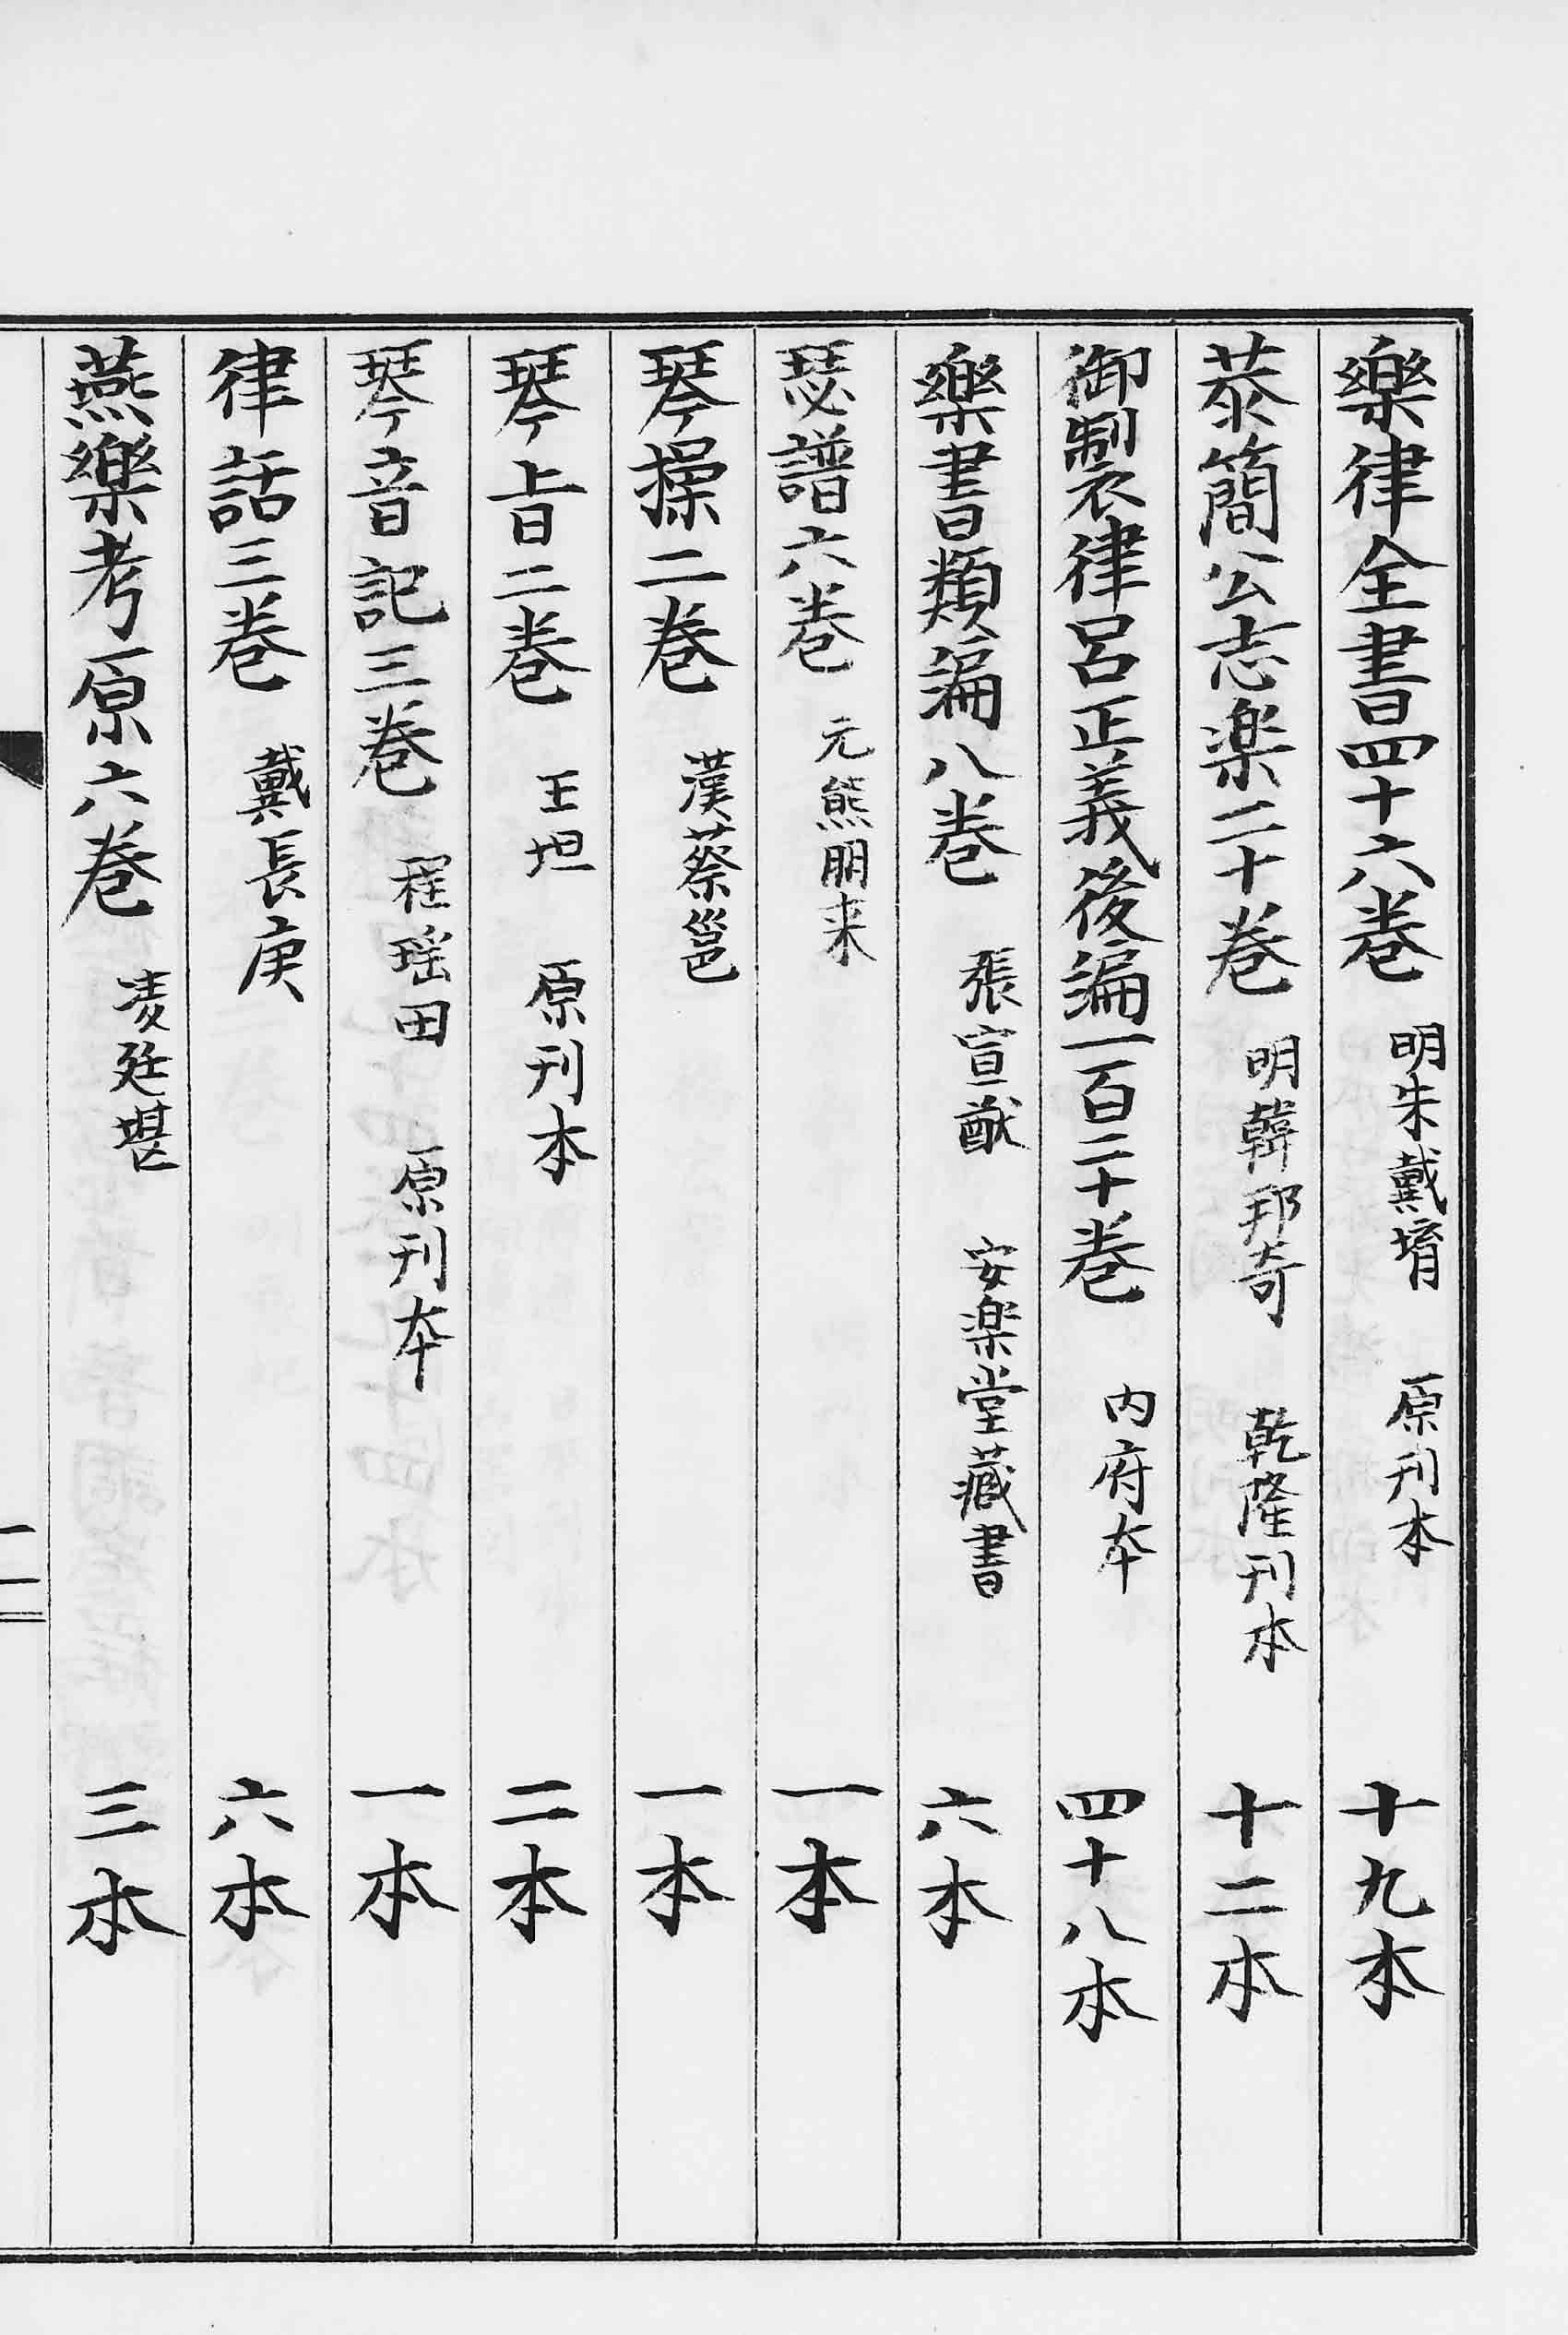 樂律全書四十六卷 明朱戴堉 原刊本 十九本
恭簡公志楽二十卷 明韓邦奇 乾隆刊本 十二本
御製律呂正義後編一百二十卷 内府本 四十八本
樂書類編八卷 張宣猷 安楽堂藏書 六本
瑟譜六卷 元熊朋来 一本
琴操二卷 漢蔡邕 一本
琴旨二卷 王坦 原刊本 二本
琴音記三卷 程瑶田 原刊本 一本
律話三卷 戴長庚 六本
燕樂考原六卷 凌廷堪 三本